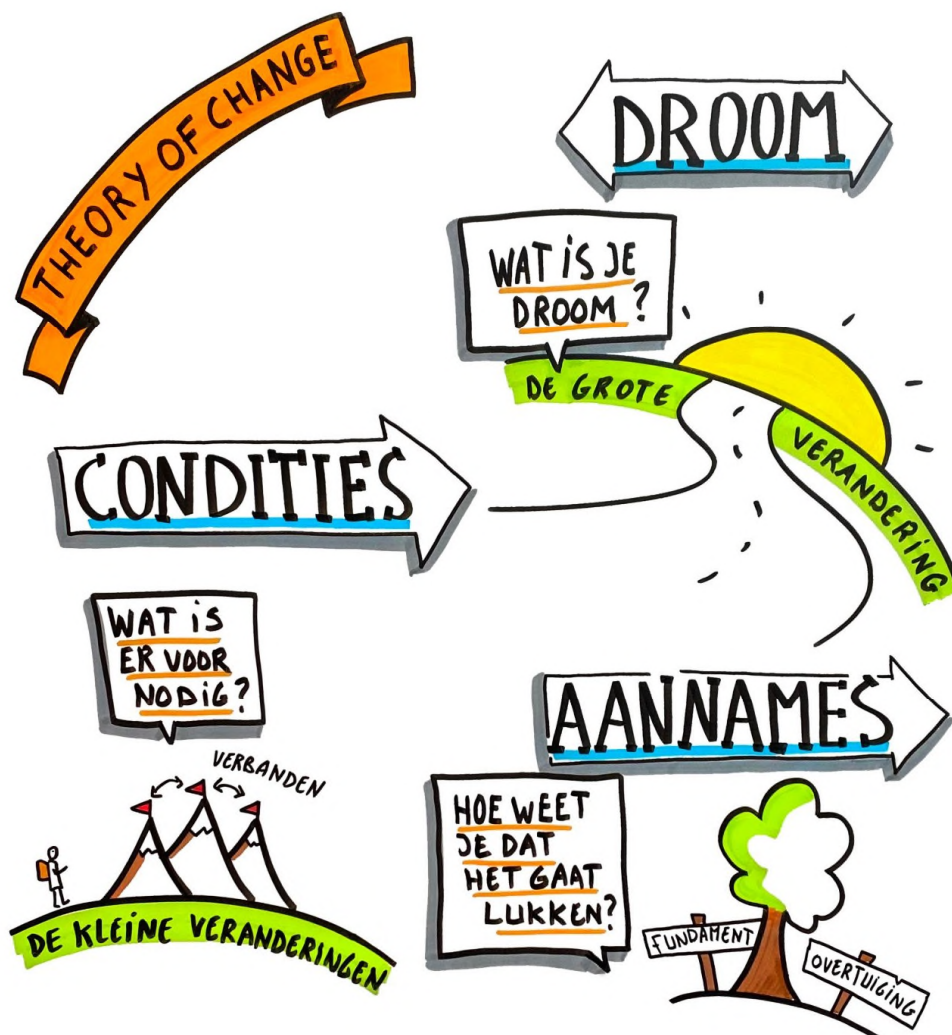 THEORY OF CHANGE
DROOM
WAT IS JE
DROOM?
DE GROTE
VERANDERING
CONDITIES
WAT IS
ER VOOR
NODIG?
VERBANDEN
DE KLEINE VERANDERINGEN
AANNAMES
HOE WEET
JE DAT
HET GAAT
LUKKEN?
FUNDAMENT
OVERTUIGING